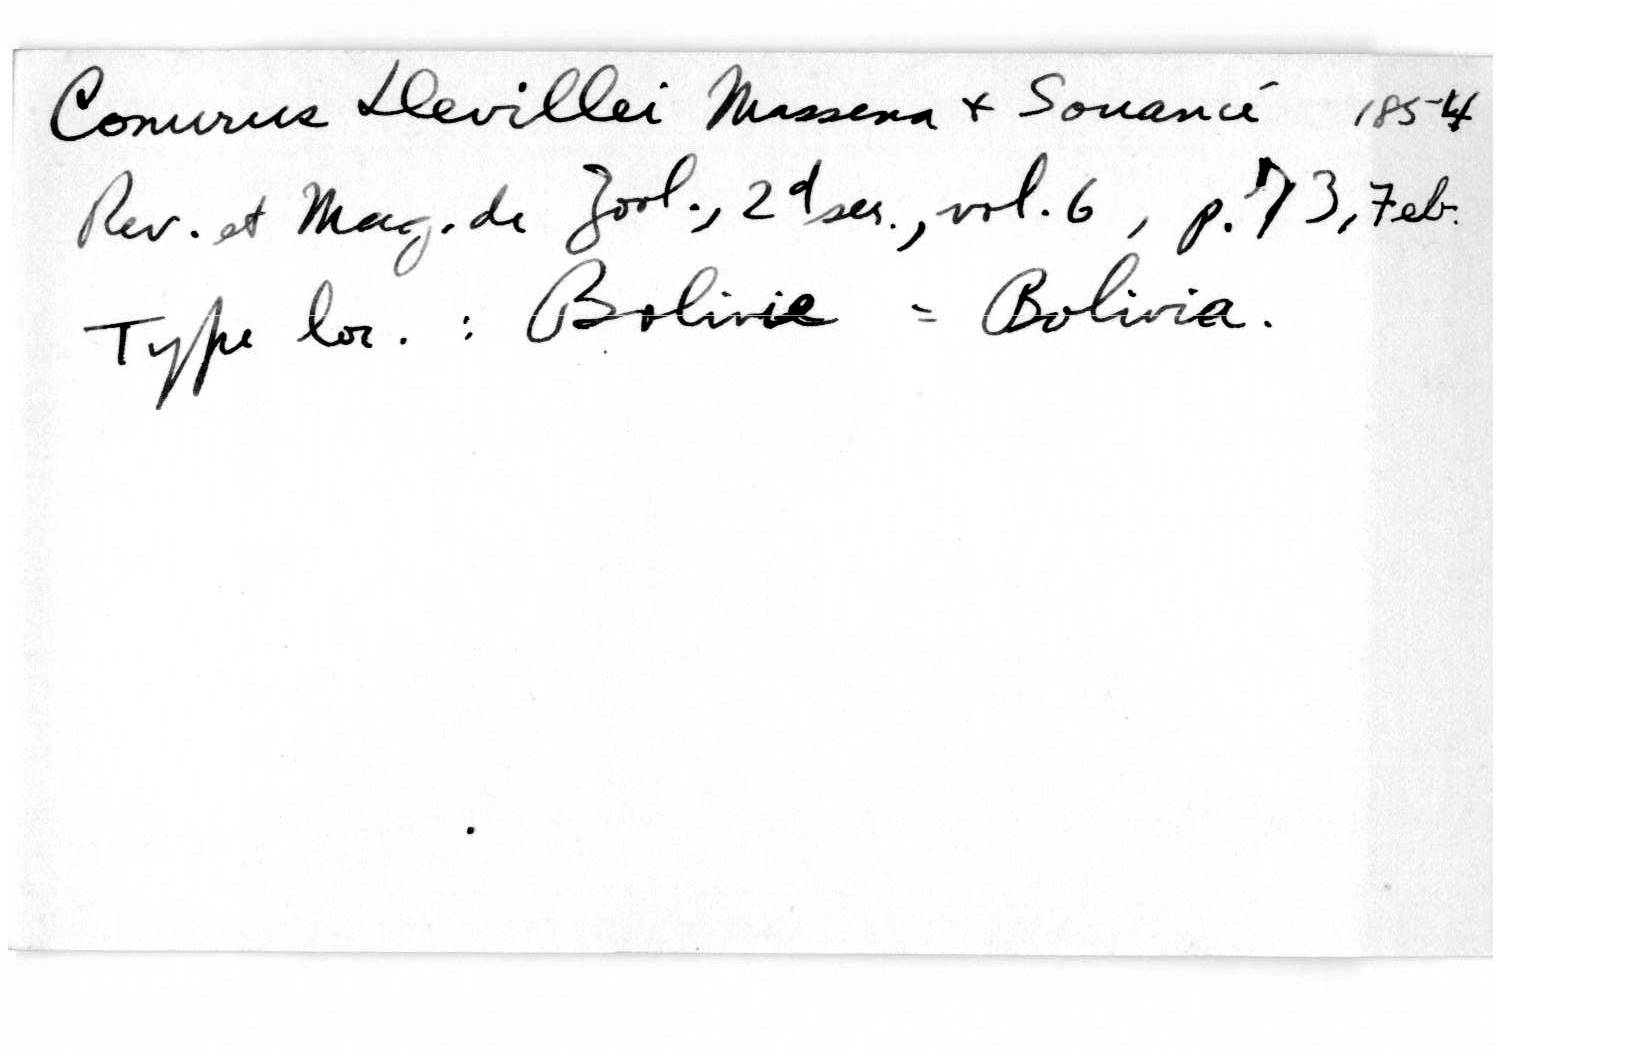 Conurus Devillei Massena + Souancé 1854
Rev. et Mag. de Zool., 2d ser., vol. 6, p. 73, Feb.
Type loc. : Bolivie = Bolivia.